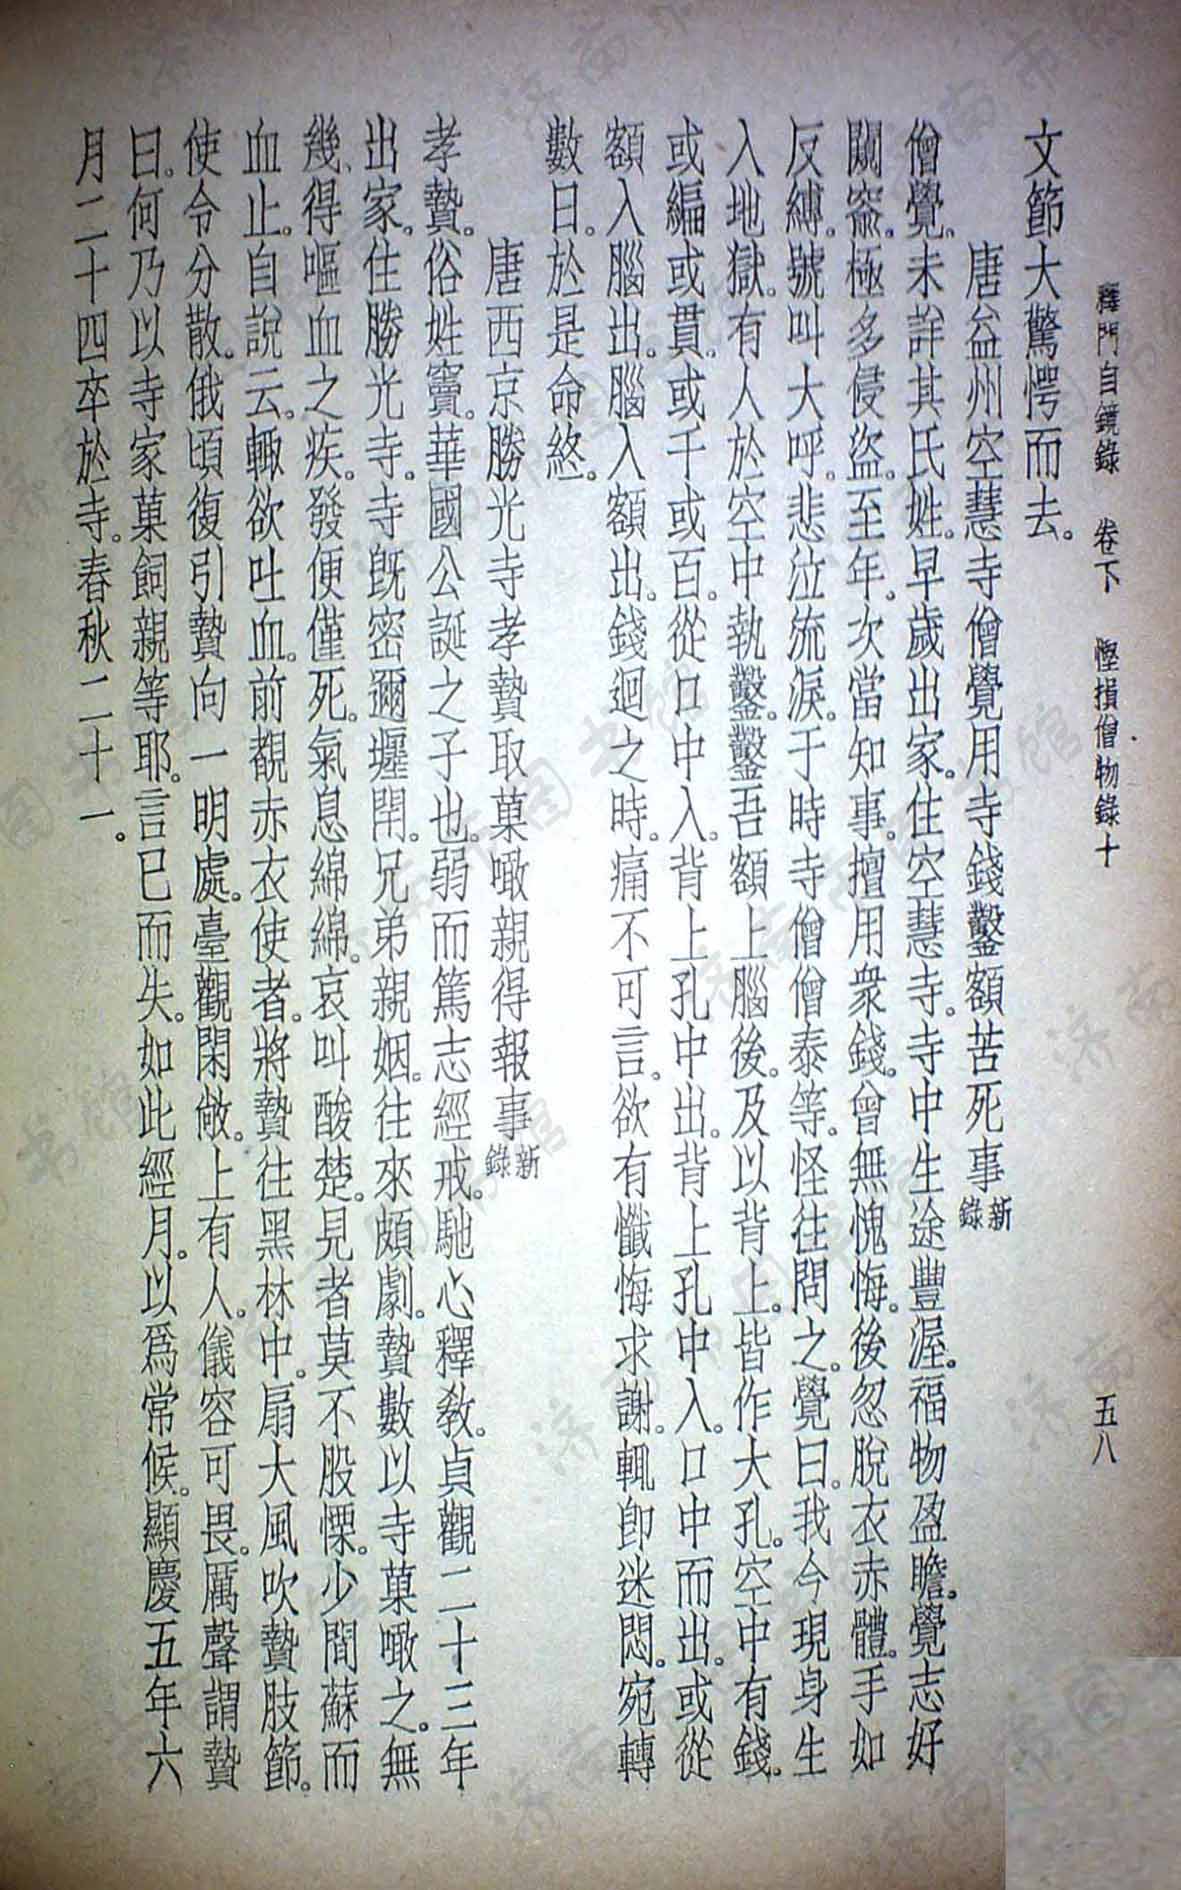 釋門自鏡錄　卷下　慳損僧物錄十　五八
文節大驚愕而去。
唐益州空慧寺僧覺用寺錢鑿額苦死事新錄
僧覺。未詳其氏姓。早歲出家。住空慧寺。寺中生途豐渥。福物盈贍。覺志好
闚窬。極多侵盜。至年。次當知事。擅用衆錢。曾無愧悔。後忽脫衣赤體。手如
反縛。號叫大呼。悲泣流淚。于時寺僧僧泰等。怪往問之。覺曰。我今現身生
入地獄。有人於空中執鑿。鑿吾額上腦後。及以背上。皆作大孔。空中有錢。
或編或貫。或千或百。從口中入。背上孔中出。背上孔中入。口中而出。或從
額入腦出。腦入額出。錢迴之時。痛不可言。欲有懺悔求謝。輒卽迷悶。宛轉
數日。於是命終。
唐西京勝光寺孝贄取菓噉親得報事新錄
孝贄。俗姓竇。華國公誕之子也。弱而篤志經戒。馳心釋敎。貞觀二十三年
出家。住勝光寺。寺旣密邇壥閈。兄弟親姻。往來頗劇。贄數以寺菓噉之。無
幾。得嘔血之疾。發便僅死。氣息綿綿。哀叫酸楚。見者莫不股慄。少間蘇而
血止。自說云。輙欲吐血。前覩赤衣使者。將贄往黑林中。扇大風吹贄肢節。
使令分散。俄頃復引贄向一明處。臺觀閑敞。上有人。儀容可畏。厲聲謂贄
曰。何乃以寺家菓飼親等耶。言已而失。如此經月。以爲常候。顯慶五年六
月二十四卒於寺。春秋二十一。